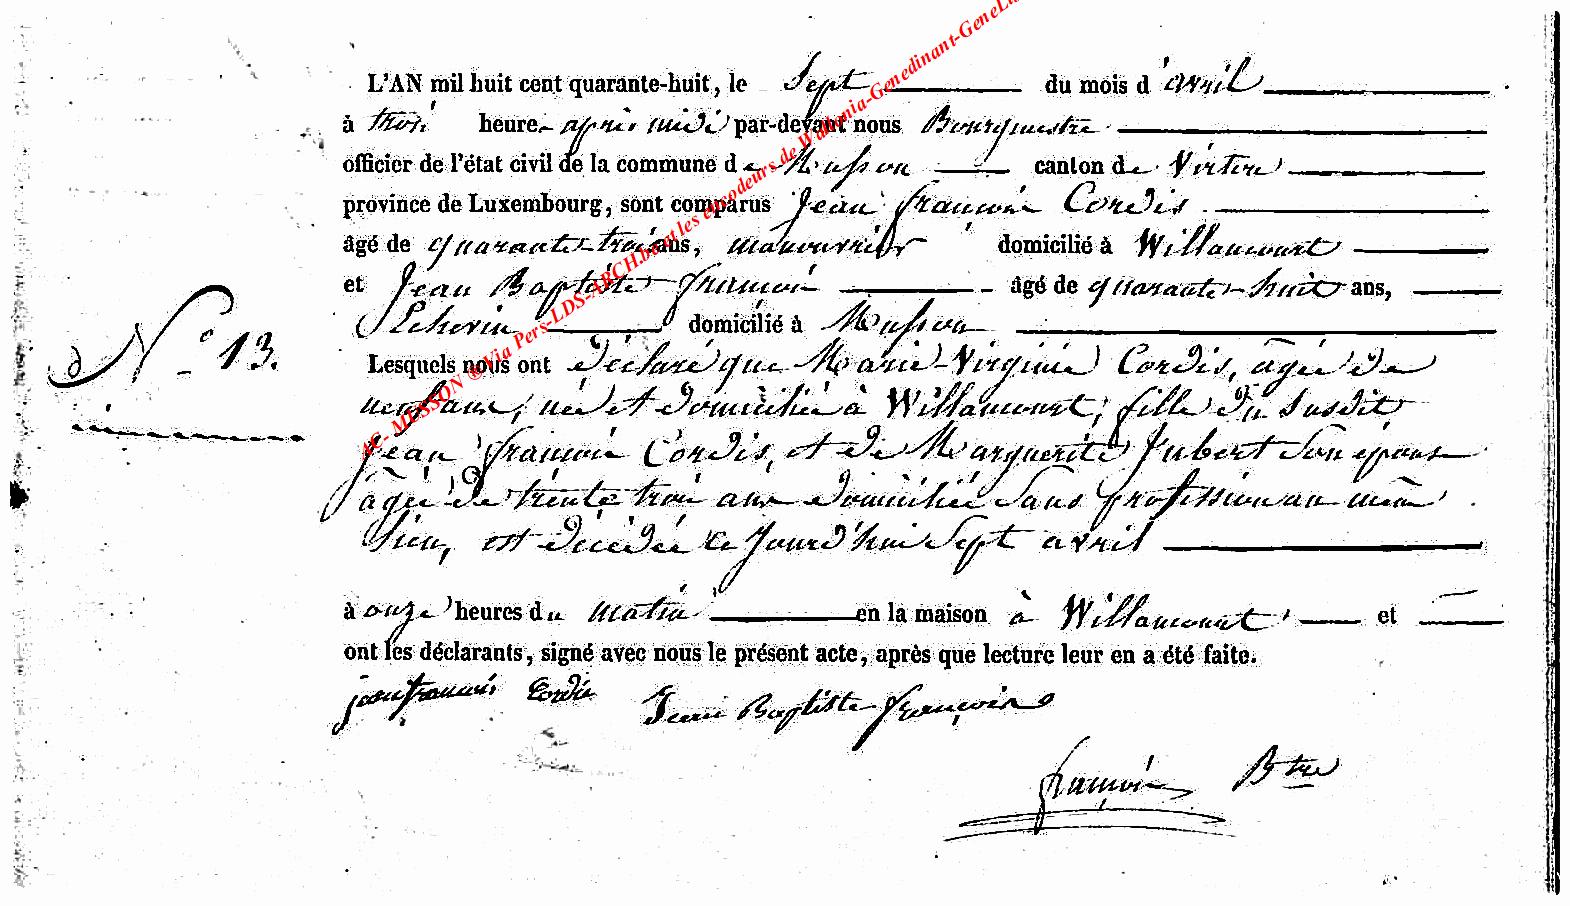 L'AN mil huit cent quarante-huit, le Sept du mois d'avril
à trois heure après midi par-devant nous Bourgmestre
officier de l'état civil de la commune de Musson canton de Virton
province de Luxembourg, sont comparus Jean françois Cordis
âgé de quarante-trois ans, manouvrier domicilié à Willancourt
et Jean Baptiste françois âgé de quarante-huit ans,
domicilié à Musson
N° 13.
Lesquels nous ont déclaré que Marie-Virginie Cordis, âgée de
neuf ans, née et domiciliée à Willancourt, fille du susdit
Jean françois Cordis, et de Marguerite Jubert son épouse
âgée de trente trois ans domiciliée sans profession au même
lieu, est décédée ce jourd'hui Sept avril
à onze heures du matin en la maison à Willancourt et
ont les déclarants, signé avec nous le présent acte, après que lecture leur en a été faite.
jean francois Cordis Jean Baptiste françois
françois Btre
AC- MUSSON ® Via Pers-LDS-ARCH.be et les encodeurs de Wallonia-Genedinant-GeneLu